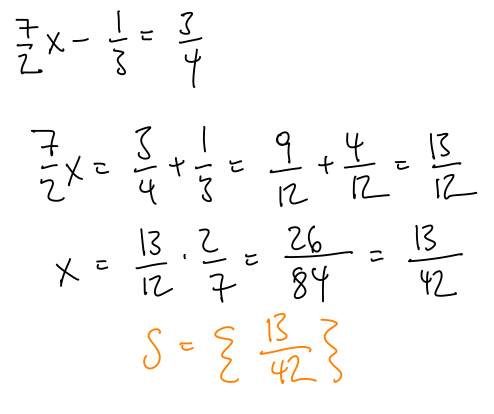 7/2 x - 1/3 = 3/4
7/2 x = 3/4 + 1/3 = 9/12 + 4/12 = 13/12
x = 13/12 · 2/7 = 26/84 = 13/42
S = { 13/42 }